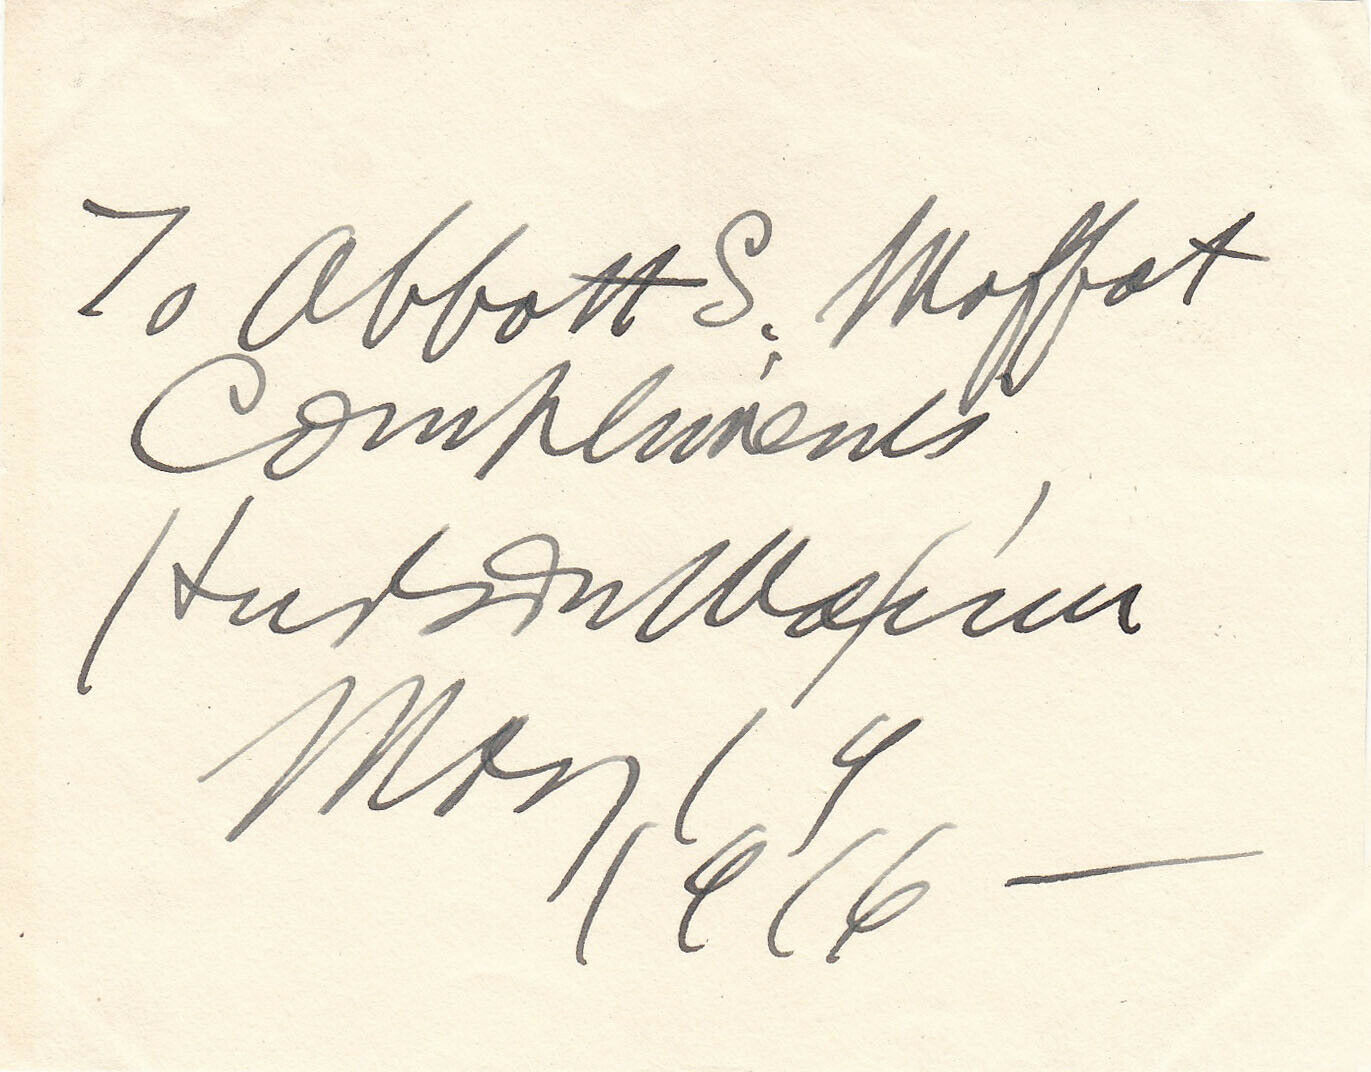 To Abbott S. Moffat
Compliments
Hudson Maxim
May 19
1916 —